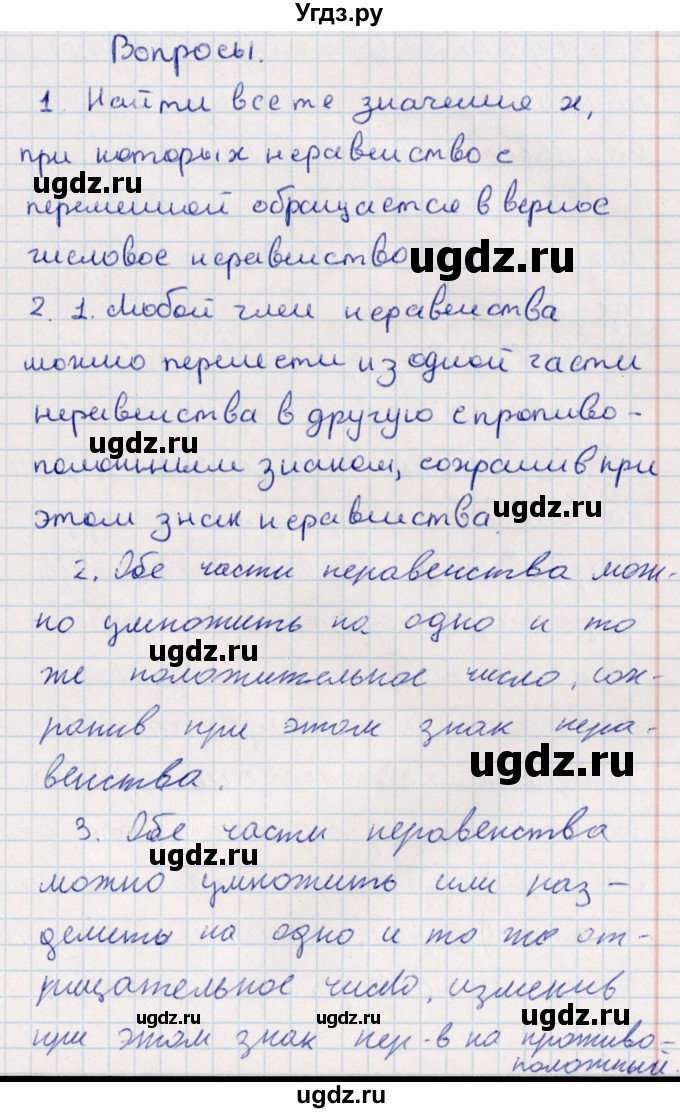 Угдз.ру
Вопросы.
1 Найти все те значения x,
при которых неравенство с
ugdz.ru
переменной обращается в верное
числовое неравенство
ugdz.ru
2. 1. Любой член неравенства
можно перенести из одной части
неравенства в другую с противо-
ugdz.ru
положным знаком, сохранив при
этом знак неравенства.
ugdz.ru
2. Обе части неравенства мож-
но умножить на одно и то
ugdz.ru
же положительное число, сох-
ранив при этом знак нера-
венства.
ugdz.ru
3. Обе части неравенства
ugdz.ru
можно умножить или раз-
делить на одно и то же от-
рицательное число, изменив
ugdz.ru ugdz.ru ugdz.ru
при этом знак нер-в на противо-
положный.
ugdz.ru